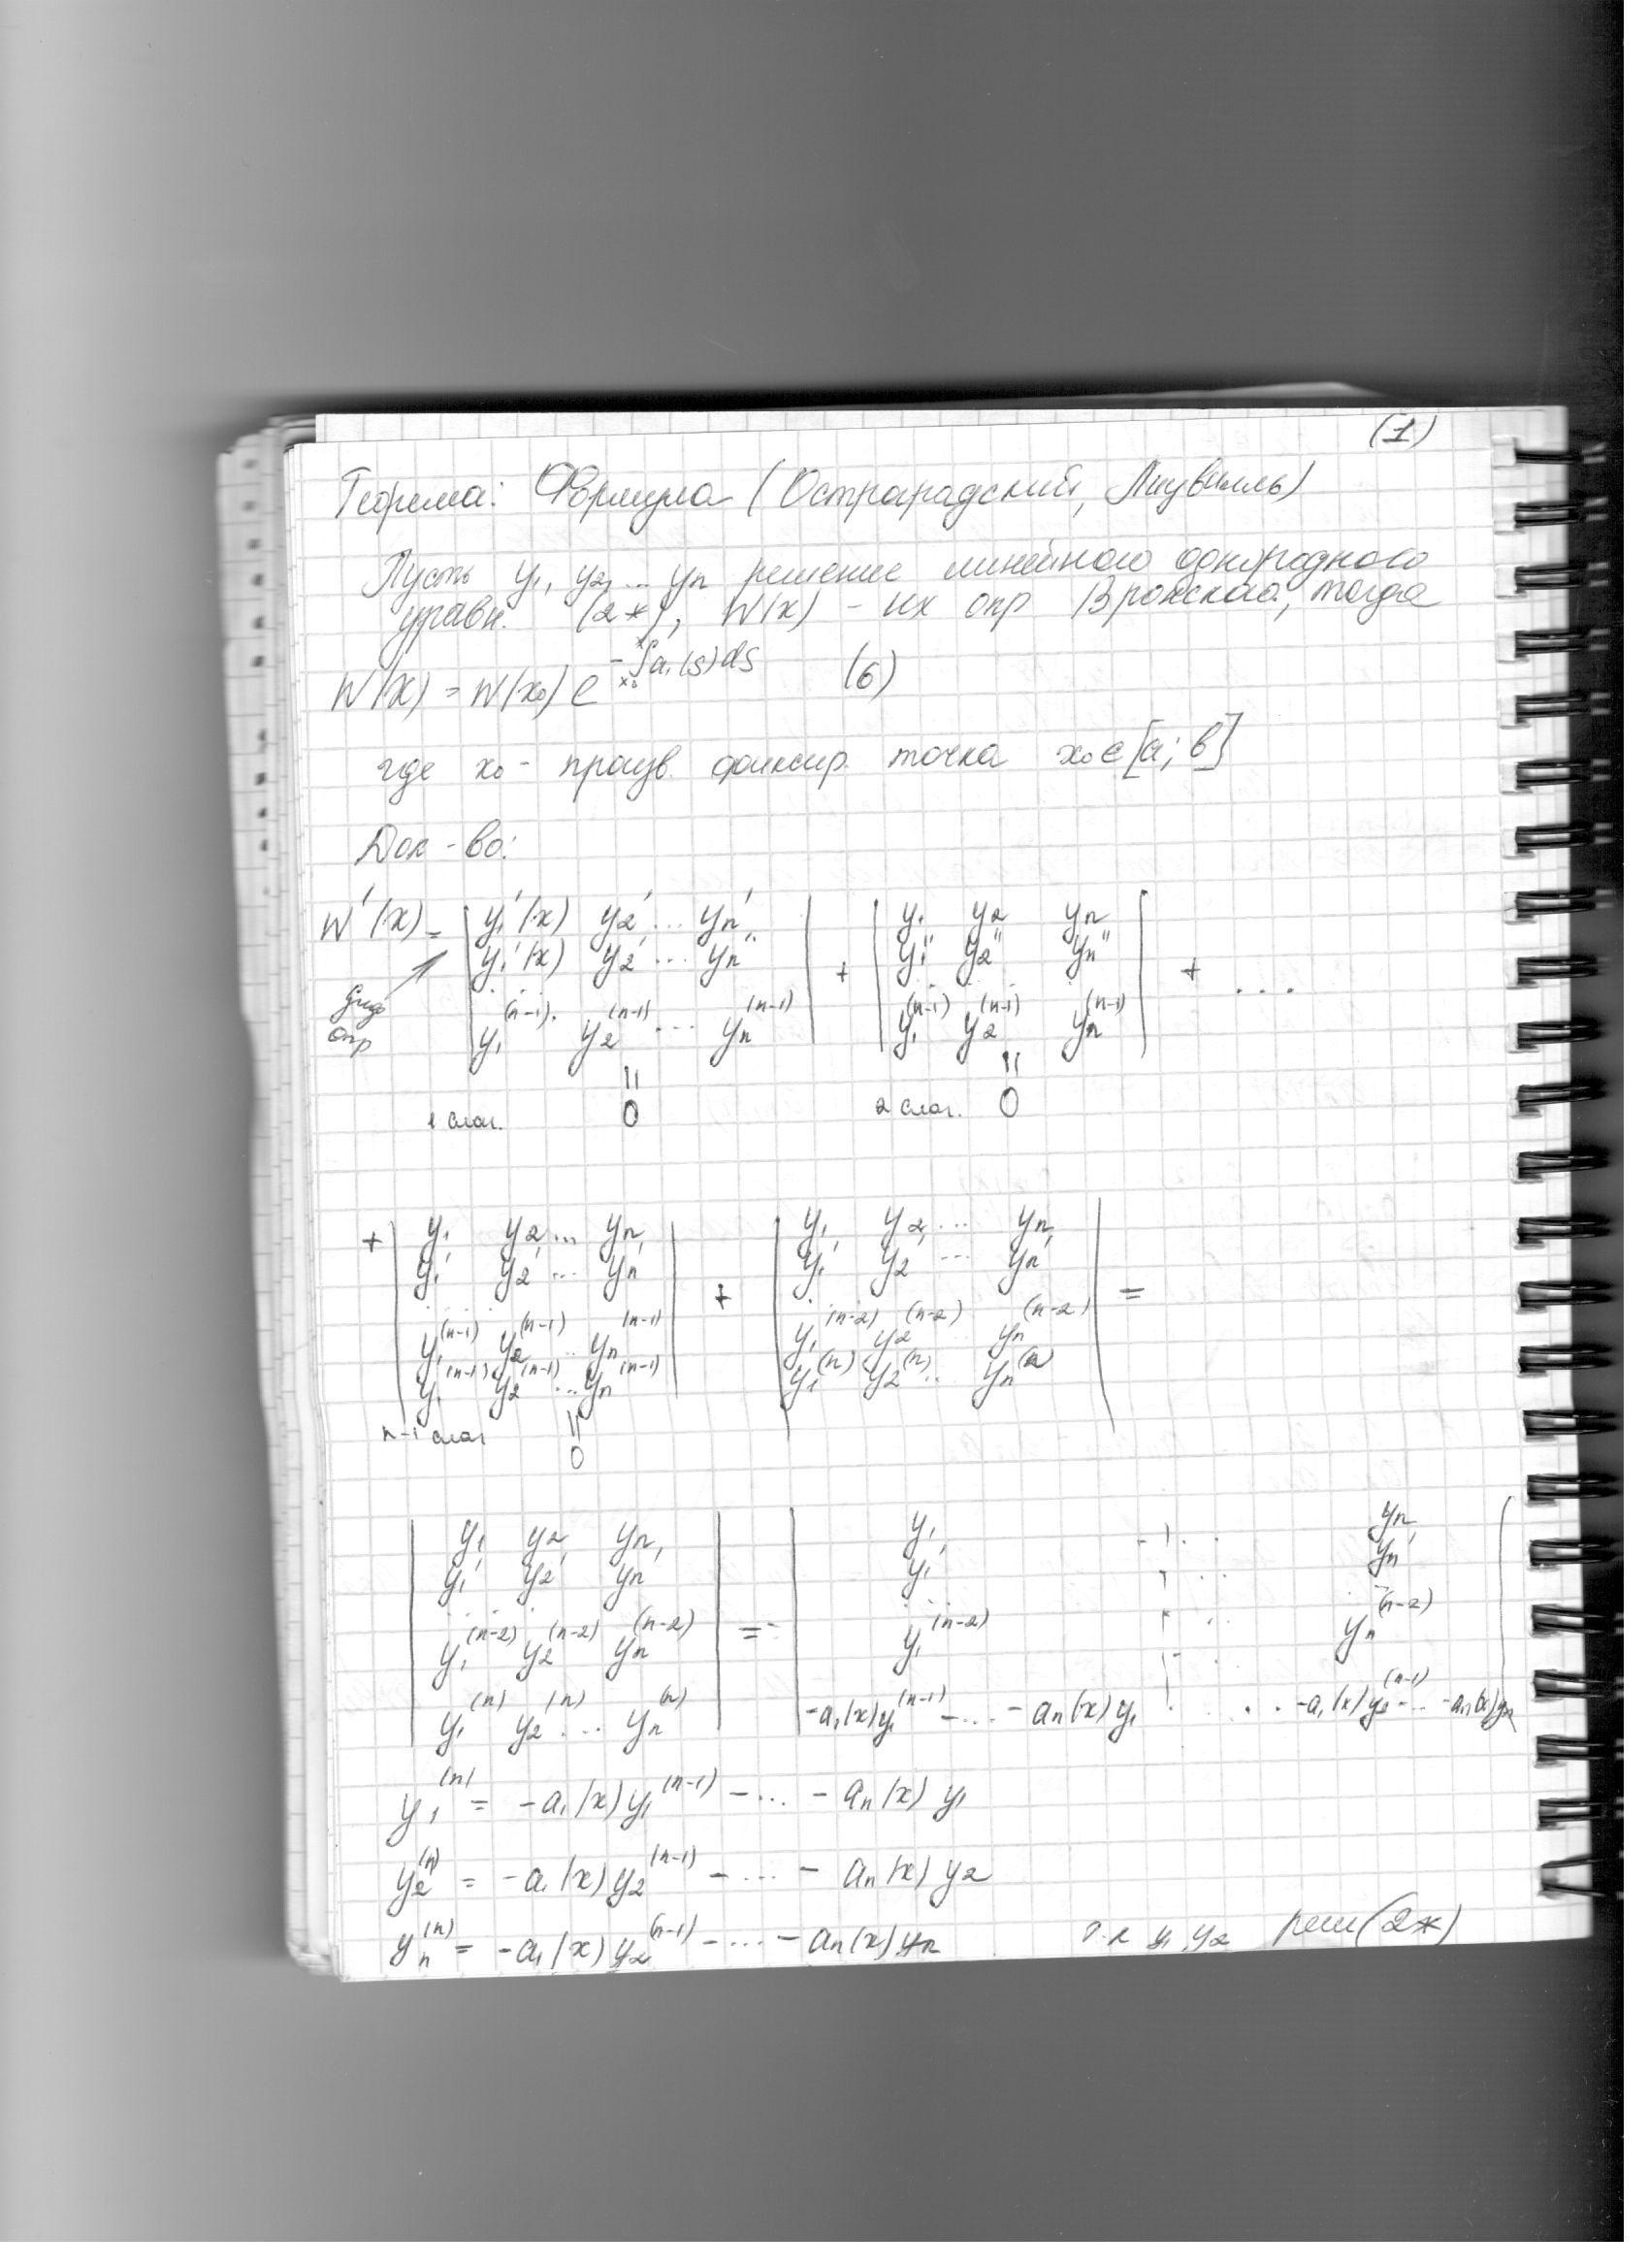 (1)
Теорема: Формула (Остроградский, Лиувилль)
Пусть y₁, y₂, ... yₙ решение линейного однородного
уравн. (2*), W(x) - их опр Вронского, тогда
W(x) = W(x₀) e^{-∫_{x₀}^{x} a₁(s)ds} (6)
где x₀ - произв. фиксир. точка x₀ ∈ [a; b]
Док-во:
W'(x) = | y₁'(x) y₂' ... yₙ' | + | y₁ y₂ yₙ | + ...
| y₁'(x) y₂' ... yₙ' | | y₁'' y₂'' yₙ'' |
| y₁⁽ⁿ⁻¹⁾ y₂⁽ⁿ⁻¹⁾ ... yₙ⁽ⁿ⁻¹⁾ | | y₁⁽ⁿ⁻¹⁾ y₂⁽ⁿ⁻¹⁾ yₙ⁽ⁿ⁻¹⁾ |
опр
|| ||
1 слаг. 0 2 слаг. 0
+ | y₁ y₂ ... yₙ | + | y₁ y₂ ... yₙ | =
| y₁' y₂' ... yₙ' | | y₁' y₂' ... yₙ' |
| y₁⁽ⁿ⁻¹⁾ y₂⁽ⁿ⁻¹⁾ ... yₙ⁽ⁿ⁻¹⁾ | | y₁⁽ⁿ⁻²⁾ y₂⁽ⁿ⁻²⁾ ... yₙ⁽ⁿ⁻²⁾ |
| y₁⁽ⁿ⁻¹⁾ y₂⁽ⁿ⁻¹⁾ ... yₙ⁽ⁿ⁻¹⁾ | | y₁⁽ⁿ⁾ y₂⁽ⁿ⁾ ... yₙ⁽ⁿ⁾ |
n-1 слаг ||
0
| y₁ y₂ yₙ | = | y₁ ... yₙ |
| y₁' y₂' yₙ' | | y₁' ... yₙ' |
| y₁⁽ⁿ⁻²⁾ y₂⁽ⁿ⁻²⁾ yₙ⁽ⁿ⁻²⁾ | | y₁⁽ⁿ⁻²⁾ ... yₙ⁽ⁿ⁻²⁾ |
| y₁⁽ⁿ⁾ y₂⁽ⁿ⁾ ... yₙ⁽ⁿ⁾ | | -a₁(x)y₁⁽ⁿ⁻¹⁾ - ... - aₙ(x)y₁ ... -a₁(x)y₂⁽ⁿ⁻¹⁾ ... -aₙ(x)yₙ |
y₁⁽ⁿ⁾ = -a₁(x)y₁⁽ⁿ⁻¹⁾ - ... - aₙ(x)y₁
y₂⁽ⁿ⁾ = -a₁(x)y₂⁽ⁿ⁻¹⁾ - ... - aₙ(x)y₂
yₙ⁽ⁿ⁾ = -a₁(x)y₂⁽ⁿ⁻¹⁾ - ... - aₙ(x)yₙ т.к y₁ y₂ реш (2*)